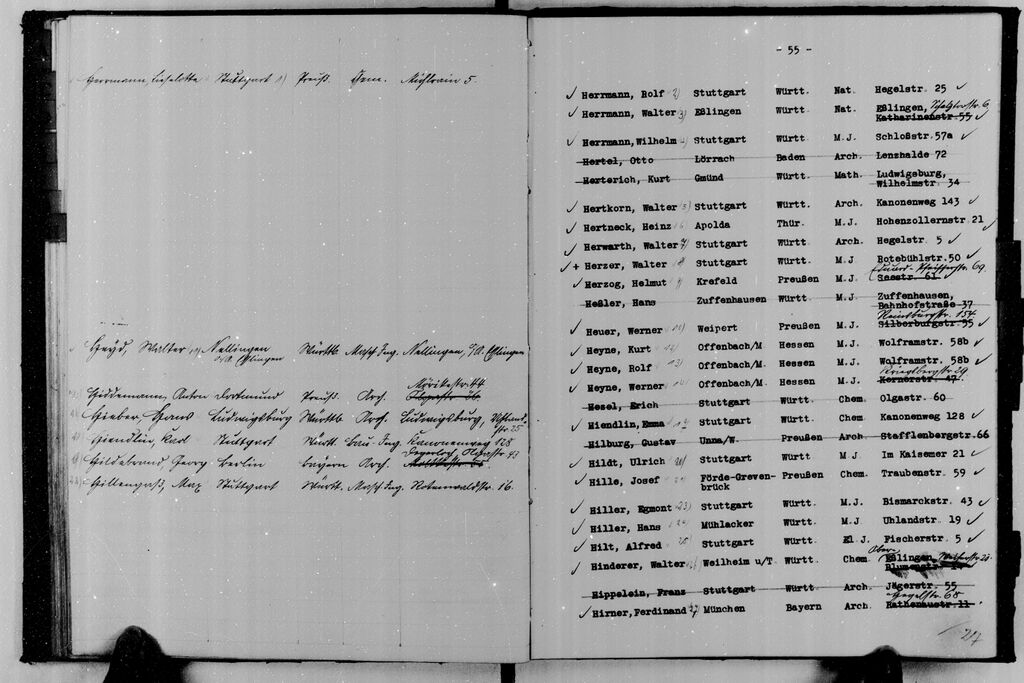 Herrmann, Lieselotte Stuttgart 1) Preuß. Chem.
Heyd, Walter Nellingen Württb. Masch.Ing. Nellingen, a/N. Esslingen
a/N. Esslingen
Mörikestr. 44
Hiddemann, Anton Dortmund Preuß. Arch.
Hieber, Hans Ludwigsburg Württb. Arch. Ludwigsburg,
str. 25
Hiendlin, Karl Stuttgart Württ. Bau-Ing. Kanonenweg 128
Degerloch, Olgastr. 43
Hildebrand, Georg Berlin Bayern Arch.
Hillengaß, Max Stuttgart Württ. Masch.Ing. Rotenwaldstr. 16.
- 55 -
✓ Herrmann, Rolf 2) Stuttgart Württ. Nat. Hegelstr. 25 ✓
✓ Herrmann, Walter 3) Eßlingen Württ. Nat. Eßlingen,
Katharinenstr. 55 ✓
✓ Herrmann, Wilhelm 4) Stuttgart Württ. M.J. Schloßstr. 57a ✓
Hertel, Otto Lörrach Baden Arch. Lenzhalde 72
Herterich, Kurt Gmünd Württ. Math. Ludwigsburg,
Wilhelmstr. 34
✓ Hertkorn, Walter 5) Stuttgart Württ. Arch. Kanonenweg 143 ✓
✓ Hertneck, Heinz 6) Apolda Thür. M.J. Hohenzollernstr. 21 ✓
✓ Herwarth, Walter 7) Stuttgart Württ. Arch. Hegelstr. 5 ✓
✓ + Herzer, Walter 8 Stuttgart Württ. M.J. Rotebühlstr. 50 ✓
Eduard-Pfeifferstr. 69.
✓ Herzog, Helmut 9) Krefeld Preußen M.J. Seestr. 61 ✓
Heßler, Hans Zuffenhausen Württ. M.J. Zuffenhausen,
Bahnhofstraße 37
Reinsburgstr. 154
✓ Heuer, Werner 11) Weipert Preußen M.J. Silberburgstr. 55 ✓
✓ Heyne, Kurt 12) Offenbach/M Hessen M.J. Wolframstr. 58b ✓
✓ Heyne, Rolf 13) Offenbach/M. Hessen M.J. Wolframstr. 58b ✓
Kriegsbergstr. 29
✓ Heyne, Werner 14) Offenbach/M. Hessen M.J. Kernerstr. 47
Hesel, Erich Stuttgart Württ. Chem. Olgastr. 60
✓ Hiendlin, Emma 17) Stuttgart Württ. Chem. Kanonenweg 128 ✓
Hilburg, Gustav Unna/W. Preußen Arch. Stafflenbergstr. 66
✓ Hildt, Ulrich 20) Stuttgart Württ. M.J. Im Kaisemer 21 ✓
✓ Hills, Josef 21 Förde-Greven- Preußen Chem. Traubenstr. 59 ✓
brück
✓ Hiller, Egmont 23) Stuttgart Württ. M.J. Bismarckstr. 43 ✓
✓ Hiller, Hans 24) Mühlacker Württ. M.J. Uhlandstr. 19 ✓
✓ Hilt, Alfred 25 Stuttgart Württ. El J. Fischerstr. 5 ✓
Ober
✓ Hinderer, Walter 26) Weilheim u/T Württ. Chem. Eßlingen,
Blumenstr.
Hippelein, Franz Stuttgart Württ. Arch. Jägerstr. 55
Hegelstr. 68
✓ Hirner, Ferdinand 27) München Bayern Arch. Rathenaustr. 11